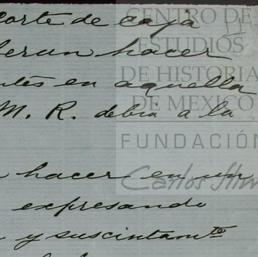 corte de caja
deran hacer
ntes en aquella
M. R. debia a la
hacer en un
expresando
y suscintamte
CENTRO DE
ESTUDIOS
DE HISTORIA
DE MEXICO
FUNDACIÓN
Carlos Slim